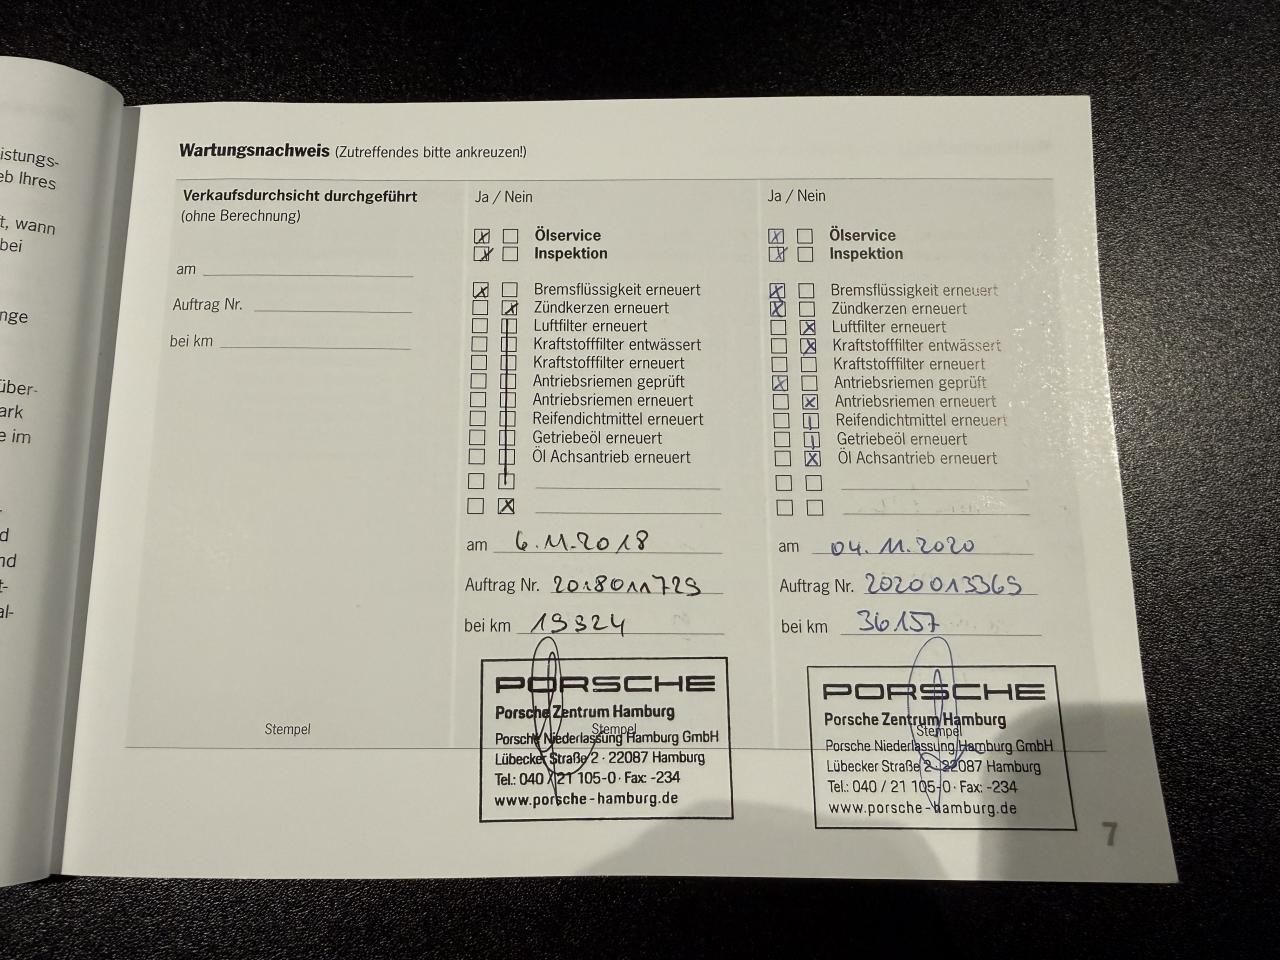 istungs-
eb Ihres
t, wann
bei
nge
über-
ark
e im
d
nd
t-
al-
Wartungsnachweis (Zutreffendes bitte ankreuzen!)
Verkaufsdurchsicht durchgeführt
(ohne Berechnung)
am
Auftrag Nr.
bei km
Stempel
Ja / Nein
Ölservice
Inspektion
Bremsflüssigkeit erneuert
Zündkerzen erneuert
Luftfilter erneuert
Kraftstofffilter entwässert
Kraftstofffilter erneuert
Antriebsriemen geprüft
Antriebsriemen erneuert
Reifendichtmittel erneuert
Getriebeöl erneuert
Öl Achsantrieb erneuert
am 6.11.2018
Auftrag Nr. 2018011729
bei km 19924
PORSCHE
Porsche Zentrum Hamburg
Stempel
Porsche Niederlassung Hamburg GmbH
Lübecker Straße 2 · 22087 Hamburg
Tel.: 040 / 21 105-0 · Fax: -234
www.porsche-hamburg.de
Ja / Nein
Ölservice
Inspektion
Bremsflüssigkeit erneuert
Zündkerzen erneuert
Luftfilter erneuert
Kraftstofffilter entwässert
Kraftstofffilter erneuert
Antriebsriemen geprüft
Antriebsriemen erneuert
Reifendichtmittel erneuert
Getriebeöl erneuert
Öl Achsantrieb erneuert
am 04.11.2020
Auftrag Nr. 2020013369
bei km 36157
PORSCHE
Porsche Zentrum Hamburg
Stempel
Porsche Niederlassung Hamburg GmbH
Lübecker Straße 2 · 22087 Hamburg
Tel.: 040 / 21 105-0 · Fax: -234
www.porsche-hamburg.de
7